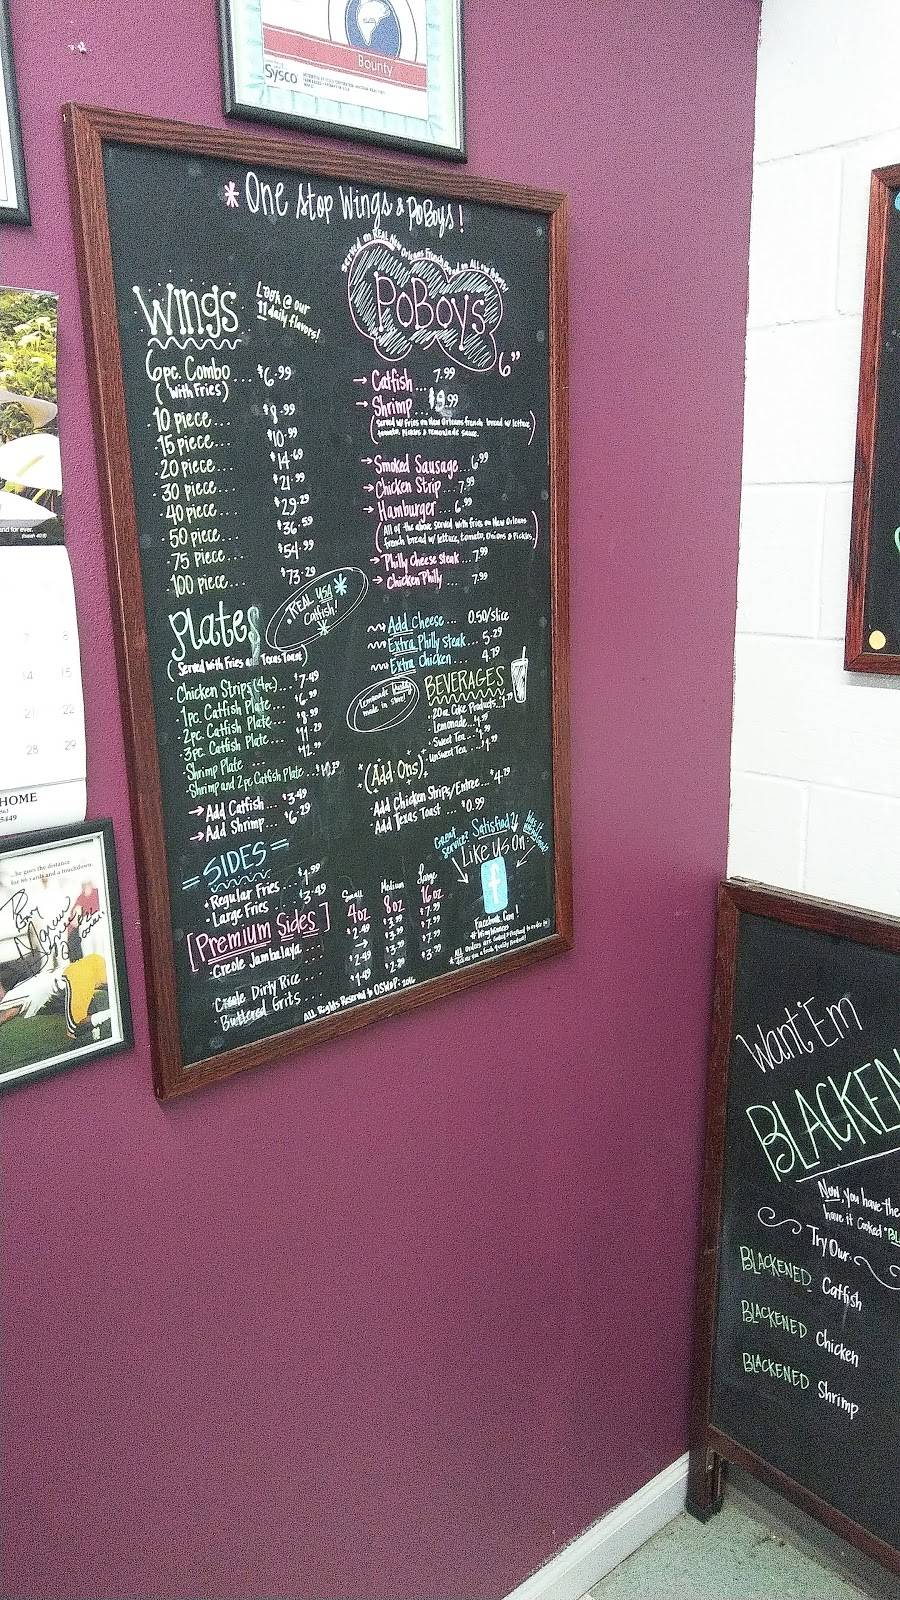 Bounty
Sysco
* One Stop Wings & PoBoys!
Served on REAL New Orleans French Bread on ALL our PoBoys!
Wings
Look @ our
11 daily flavors!
6pc. Combo ... $6.99
(With Fries)
· 10 piece... $8.99
· 15 piece... $10.99
· 20 piece... $14.69
· 30 piece... $21.99
· 40 piece... $29.29
· 50 piece... $36.59
· 75 piece... $54.99
· 100 piece... $73.29
PoBoys
6"
→ Catfish ... 7.99
→ Shrimp ... $9.99
(Served w/ Fries on New Orleans french bread w/ lettuce,
tomato, pickles & remoulade sauce.)
→ Smoked Sausage... 6.99
→ Chicken Strip... 7.99
→ Hamburger... 6.99
(All of the above served with fries on New Orleans
french bread w/ lettuce, tomato, Onions & Pickles.)
→ Philly Cheese steak... 7.99
→ Chicken Philly ... 7.99
· REAL USA
Catfish!
Add Cheese ... 0.50/slice
Extra Philly steak... 5.29
Extra Chicken ... 4.79
Plates
(Served With Fries Texas Toast)
· Chicken Strips (4pc)... $7.49
· 1pc. Catfish Plate... $6.99
· 2pc. Catfish Plate... $8.99
· 3pc. Catfish Plate... $11.29
· Shrimp Plate ... $12.99
· Shrimp and 2pc Catfish Plate...
→ Add Catfish... $3.49
→ Add Shrimp... $6.29
Lemonade
made in store!
BEVERAGES
· 20 oz. Coke Products..
· Lemonade...
· Sweet Tea ...
· Unsweet Tea ...
(Add Ons)
Add Chicken Strips/Entree ... $4.79
Add Texas Toast ... $0.99
=SIDES=
· Regular Fries ... $1.99
· Large Fries ... $3.49
[Premium Sides]
Small Medium Large
4oz 8oz 16oz
· Creole Jambalaya ... $2.49 $3.99 $7.99
· Creole Dirty Rice ... $2.49 $3.99 $7.99
· Buttered Grits ....
Great
service?
Satisfied?
Like Us On:
f
Facebook.Com!
All Rights Reserved to OSW&P: 2016
7 8
14 15
21 22
28 29
HOME
5449
...he goes the distance
for 86 yards and a touchdown.
Want 'Em
BLACKEN
Now, you have the
have it cooked "BL
Try Our
BLACKENED Catfish
BLACKENED Chicken
BLACKENED Shrimp